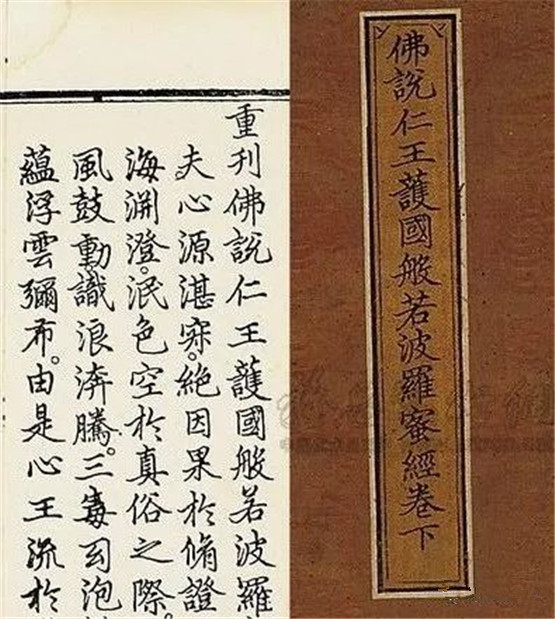 佛說仁王護國般若波羅蜜經卷下
重刊佛說仁王護國般若波羅
夫心源湛寂。絕因果於脩證
海渊澄。泯色空於真俗之際。
風鼓動識浪渀騰。三毒泡
蘊浮雲彌布。由是心王流於